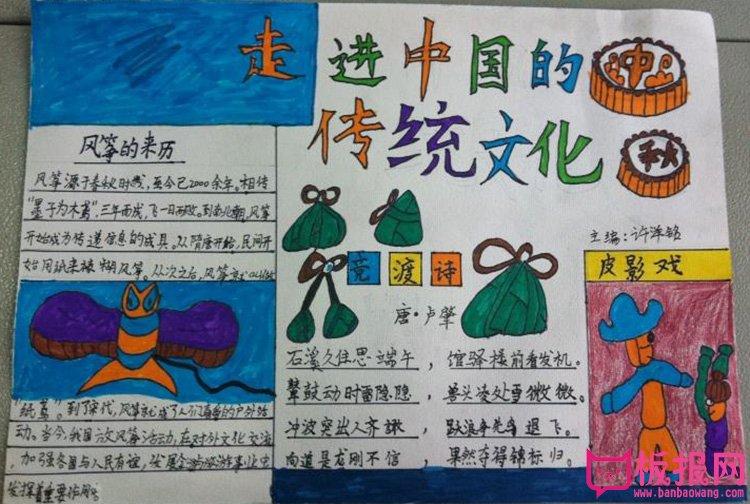 走进中国的
传统文化
中
秋
主编:许泽铭
风筝的来历
风筝源于春秋时代,至今已2000余年。相传
"墨子为木鸢",三年而成,飞一日而败。到南北朝,风筝
开始成为传递信息的
从隋唐开始,民间开
始用纸来裱糊风筝。从次之后,风筝
"纸鸢"。到了宋代,风筝
的户外活
动。当今,我国
风筝活动,在对外文化交流,
加强各国与人民友谊,发展
发挥着重要作用。
竞渡诗
唐·卢肇
石溪久住思端午,馆驿楼前看发机。
鼙鼓动时雷隐隐,兽头凌处雪微微。
冲波突出人齐
,跃浪争先鸟退飞。
向道是龙刚不信,果然夺得锦标归。
皮影戏
板报网
www.banbaowang.com